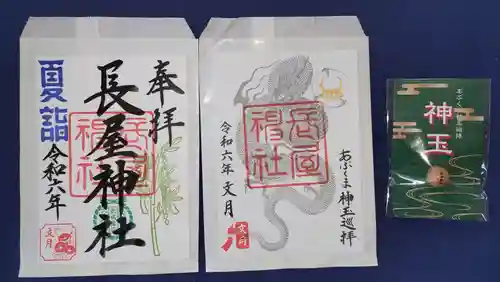 奉拝
長屋神社
夏詣
令和六年
文月
長屋神社
令和六年 文月
長屋神社
あぶくま神玉巡拝
文月
あぶくま神玉巡拝
神玉